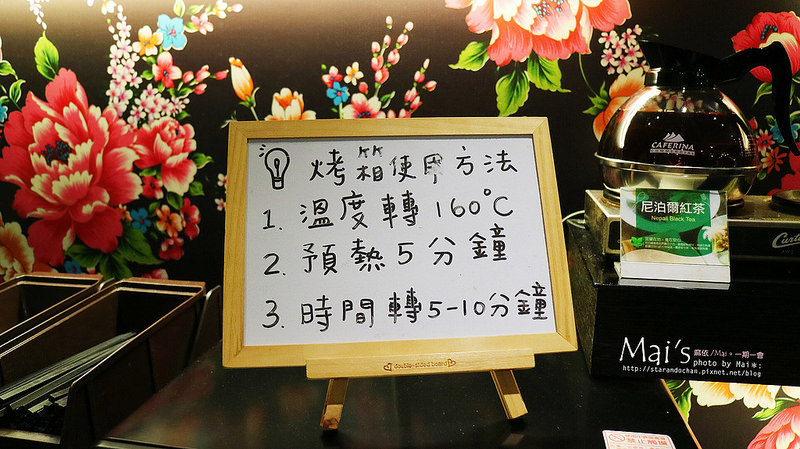 烤箱使用方法
1. 溫度轉160°C
2. 預熱5分鐘
3. 時間轉5-10分鐘
double-sided board
CAFERINA
尼泊爾紅茶
Nepali Black Tea
Curtis
Mai's 麻依/Mai＊一期一會
photo by Mai＊;
http://starandchan.pixnet.net/blog